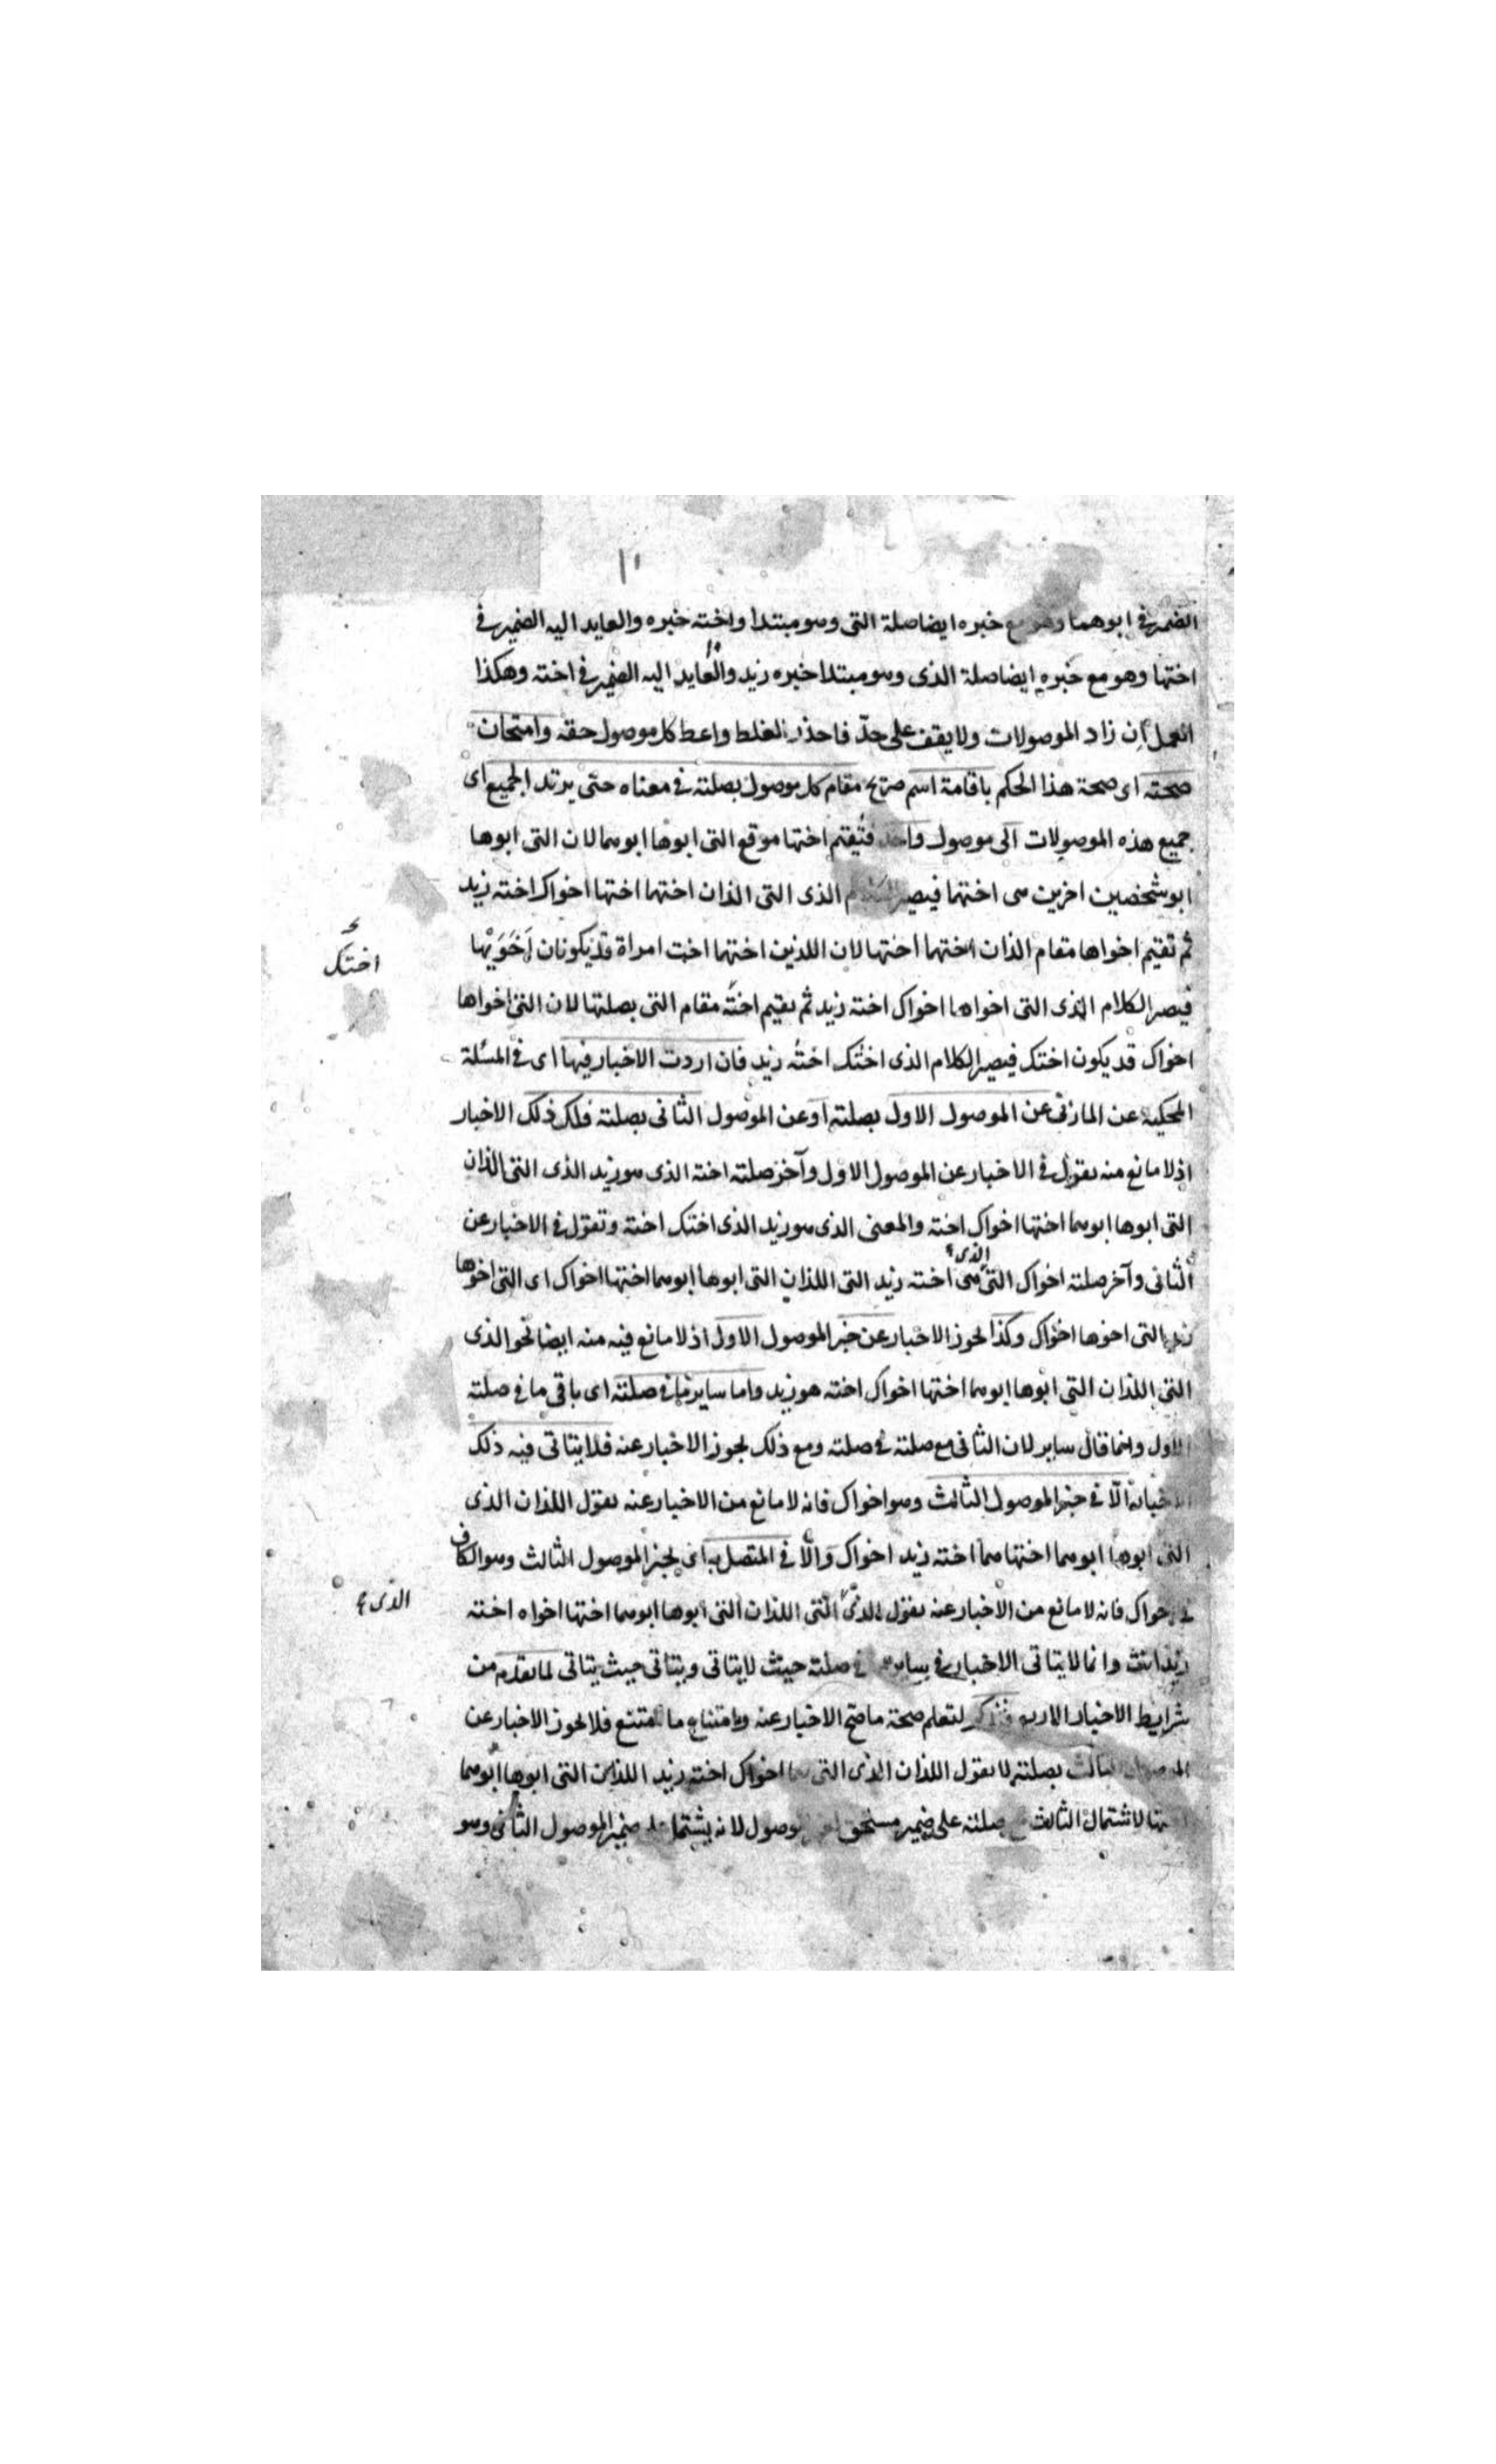 الضمير في ابوهما وهو مع خبره ايضا صلة التى وهو مبتدا واخته خبره والعايد اليه الضمير في
اختها وهو مع خبره ايضا صلة الذى وهو مبتدا خبره زيد والعايد اليه الضمير في اخته وهكذا
العمل ان زاد الموصولات ولا يقف على حدّ فاحذر الغلط واعط كل موصول حقه وامتحان
صحته اى صحة هذا الحكم باقامة اسم صريح مقام كل موصول بصلته في معناه حتى يرتد الجميع اى
جميع هذه الموصولات الى موصول واحد فتُقيم اختها موقع التى ابوها ابوهما لان التى ابوها
ابو شخصين اخرين هى اختهما فيصير الكلام الذى التى الذان اختهما اختها اخواك اخته زيد
ثم تقيم اخواها مقام الذان اختهما اختها لان اللذين اختهما اخت امراة قد يكونان اَخَوَيْها
فيصير الكلام الذى التى اخواها اخواك اخته زيد ثم تقيم اخته مقام التى بصلتها لان التى اخواها
اختك
اخواك قد يكون اختك فيصير الكلام الذى اختك اختُه زيد فان اردت الاخبار فيها اى في المسُلة
المحكية عن المازنى عن الموصول الاول بصلته او عن الموصول الثانى بصلته فلك ذلك الاخبار
اذ لا مانع منه تقول في الاخبار عن الموصول الاول وآخر صلته اخته الذى هو زيد الذى التى الذان
التى ابوها ابوهما اختها اخواك اخته والمعنى الذى هو زيد الذى اختك اخته وتقول في الاخبار عن
الذى
الثانى وآخر صلته اخواك التى هى اخته زيد التى اللذان التى ابوها ابوهما اختها اخواك اى التى اخوها
زيد التى اخوها اخواك وكذا يجوز الاخبار عن خبر الموصول الاول اذ لا مانع فيه منه ايضا نحو الذى
التى اللذان التى ابوها ابوهما اختها اخواك اخته هو زيد واما ساير ما في صلته اى باقى ما في صلته
الاول وانما قال ساير لان الثانى مع صلته في صلته ومع ذلك يجوز الاخبار عنه فلا يتاتى فيه ذلك
الّا في خبر الموصول الثالث وهو اخواك فانه لا مانع من الاخبار عنه تقول اللذان الذى
التى ابوها ابوهما اختها هما اخته زيد اخواك والّا في المتصل به اى بخبر الموصول الثالث وهو الكاف
في اخواك فانه لا مانع من الاخبار عنه تقول الذى التى اللذان التى ابوها ابوهما اختها اخواه اخته
الذى
زيد انت وانما لا يتاتى الاخبار في ساير ما في صلته حيث لا يتاتى ويتاتى حيث يتاتى لما تقدم من
شرايط الاخبار الاربع فتذكر لتعلم صحة ما صح الاخبار عنه وامتناع ما امتنع فلا يجوز الاخبار عن
الموصول الثالث بصلته لا تقول اللذان الذى التى هما اخواك اخته زيد اللذان التى ابوها ابوهما
اختها لاشتمال الثالث مع صلته على ضمير مستحق لموصول لانه يشتمل على ضمير الموصول الثانى وهو